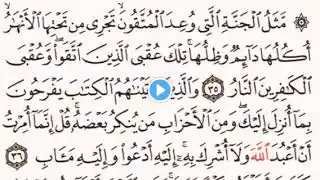 ۞ مَّثَلُ ٱلْجَنَّةِ ٱلَّتِى وُعِدَ ٱلْمُتَّقُونَ ۖ تَجْرِى مِن تَحْتِهَا ٱلْأَنْهَٰرُ ۖ
أُكُلُهَا دَآئِمٌ وَظِلُّهَا ۚ تِلْكَ عُقْبَى ٱلَّذِينَ ٱتَّقَوا۟ ۖ وَّعُقْبَى
ٱلْكَٰفِرِينَ ٱلنَّارُ ٣٥ وَٱلَّذِينَ ءَاتَيْنَٰهُمُ ٱلْكِتَٰبَ يَفْرَحُونَ
بِمَآ أُنزِلَ إِلَيْكَ ۖ وَمِنَ ٱلْأَحْزَابِ مَن يُنكِرُ بَعْضَهُۥ ۚ قُلْ إِنَّمَآ أُمِرْتُ
أَنْ أَعْبُدَ ٱللَّهَ وَلَآ أُشْرِكَ بِهِۦٓ ۚ إِلَيْهِ أَدْعُوا۟ وَإِلَيْهِ مَـَٔابِ ٣٦